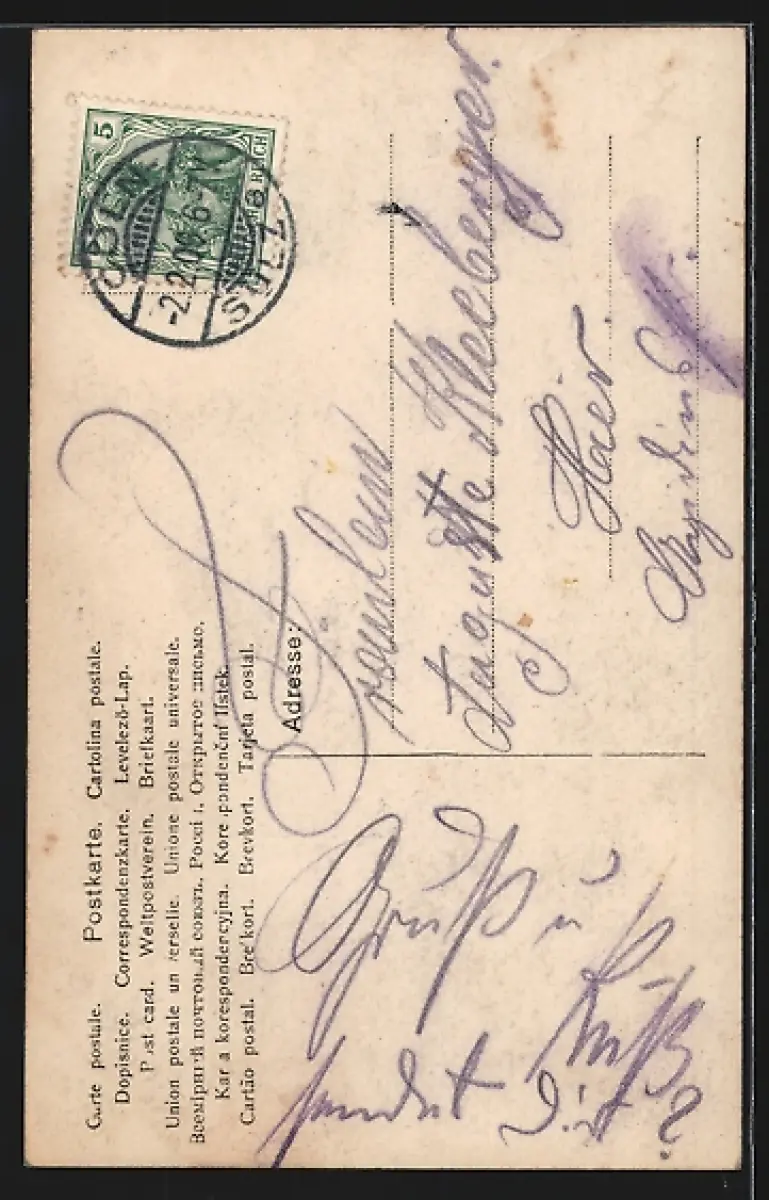 Carte postale. Postkarte. Cartolina postale.
Dopisnice. Correspondenzkarte. Levelező-Lap.
P st card. Weltpostverein. Briefkaart.
Union postale un erselle. Unione postale universale.
Всемірный почтовый союзъ. Россія. Открытое письмо.
Kar a korespondencyjna. Kore pondenční lístek.
Cartão postal. Brefkort. Brevkort. Tarjeta postal.
5
REICH
CÖLN
-2.2.06. 6-7N
SÜLZ
a
Adresse:
Fräulein
Auguste Kleeberger.
Hier
Gruß u
Kuß
sendet Dir ?